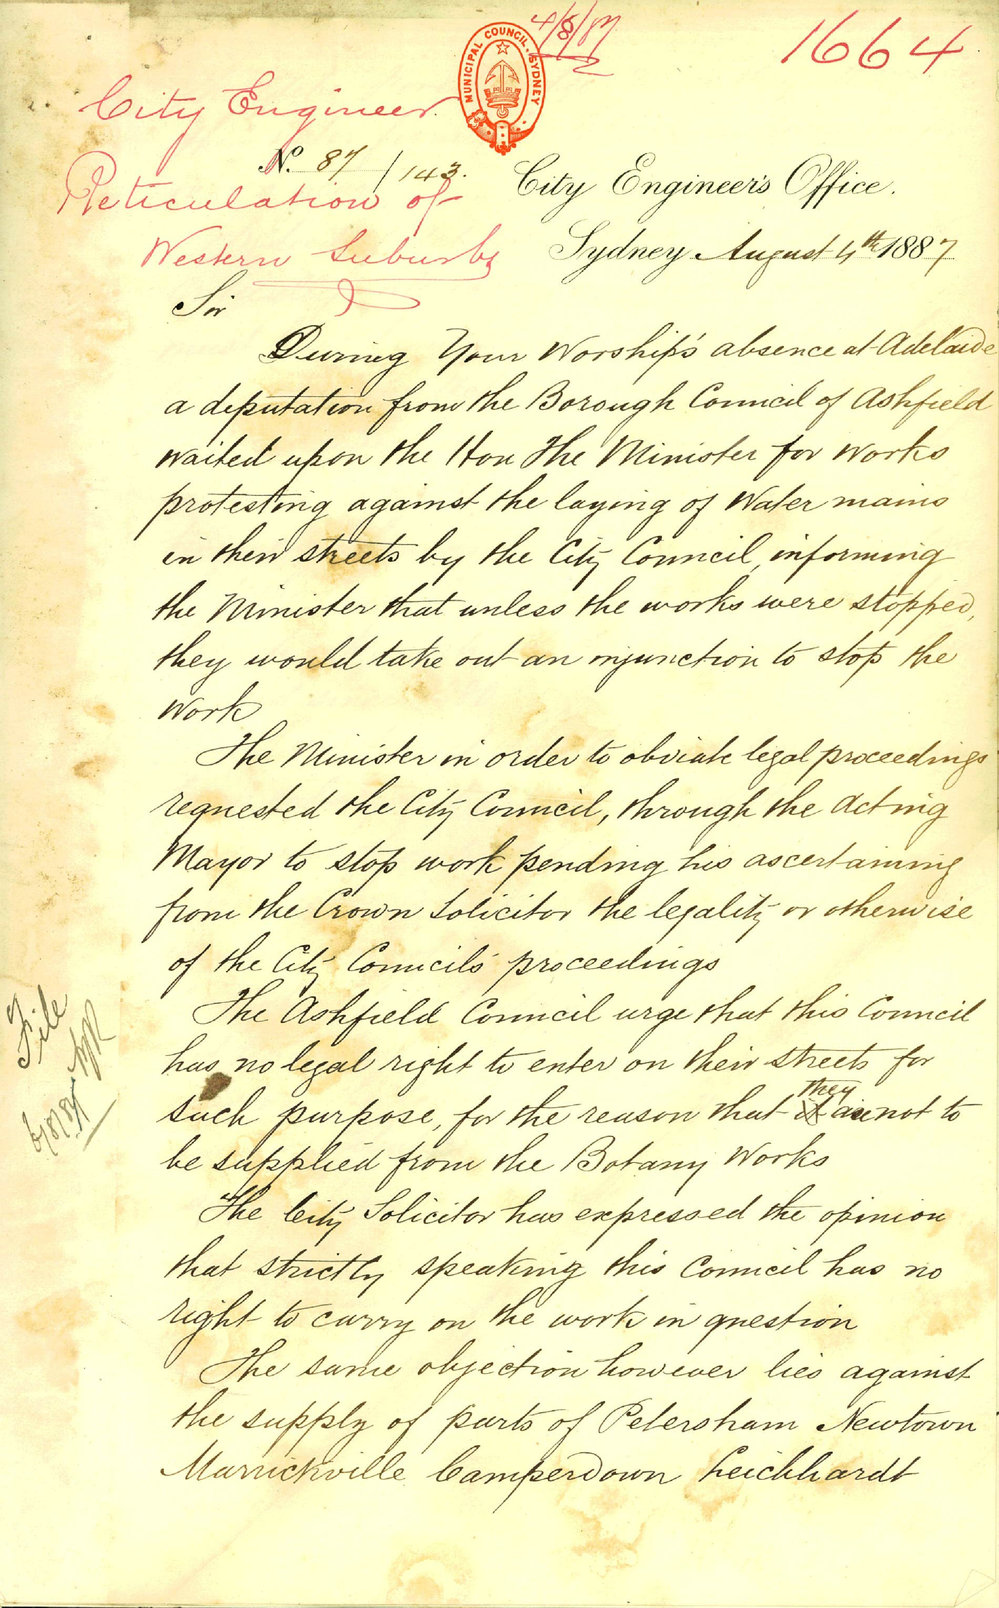 4/8/87
1664
MUNICIPAL COUNCIL. SYDNEY
City Engineer.
No. 87/143.
Reticulation of
Western Suburbs
City Engineer's Office.
Sydney August 4th 1887
Sir
During Your Worship's absence at Adelaide
a deputation from the Borough Council of Ashfield
waited upon the Hon The Minister for Works
protesting against the laying of Water mains
in their streets by the City Council, informing
the Minister that unless the works were stopped,
they would take out an injunction to stop the
work
The Minister in order to obviate legal proceedings
requested the City Council, through the Acting
Mayor to stop work pending his ascertaining
from the Crown Solicitor the legality or otherwise
of the City Council's proceedings
The Ashfield Council urge that this Council
has no legal right to enter on their streets for
such purpose, for the reason that they are not to
be supplied from the Botany Works
The City Solicitor has expressed the opinion
that strictly speaking this Council has no
right to carry on the work in question
The same objection however lies against
the supply of parts of Petersham Newtown
Marrickville Camperdown Leichhardt
File
6/8/87